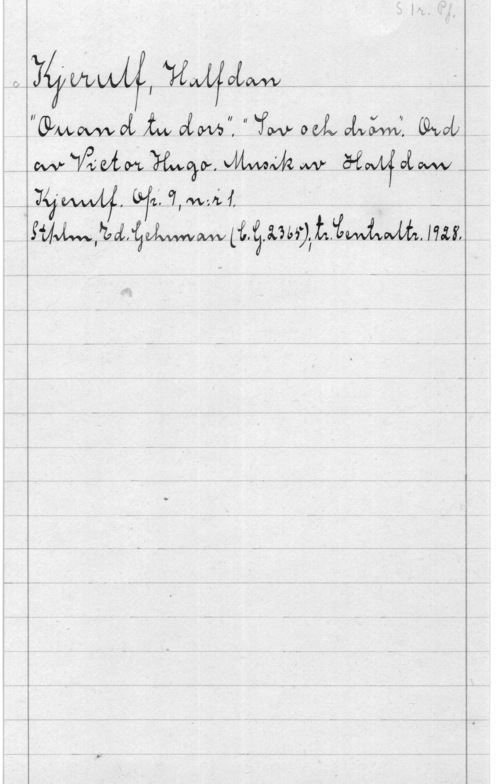 S. 1r. Pf.
Kjerulf, Halfdan
"Quand tu dors". "Sov och dröm". Ord
av Victor Hugo. Musik av Halfdan
Kjerulf. Op. 9, n:r 1.
Sthlm, Ed. Gehrman (C.G.2365), tr. Centraltr. 1928.